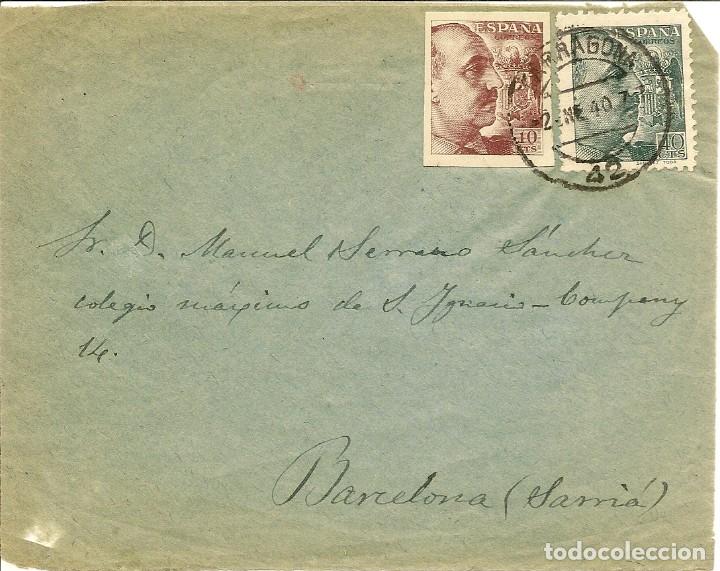 ESPAÑA
CORREOS
10
CTS
ESPAÑA
CORREOS
40
CTS
SANCHEZ TODA
TARRAGONA
2 ENE 40
42
Sr. D. Manuel Serrano Sánchez
colegio máximo de S. Ignacio - Company
14.
Barcelona (Sarriá)
todocoleccion